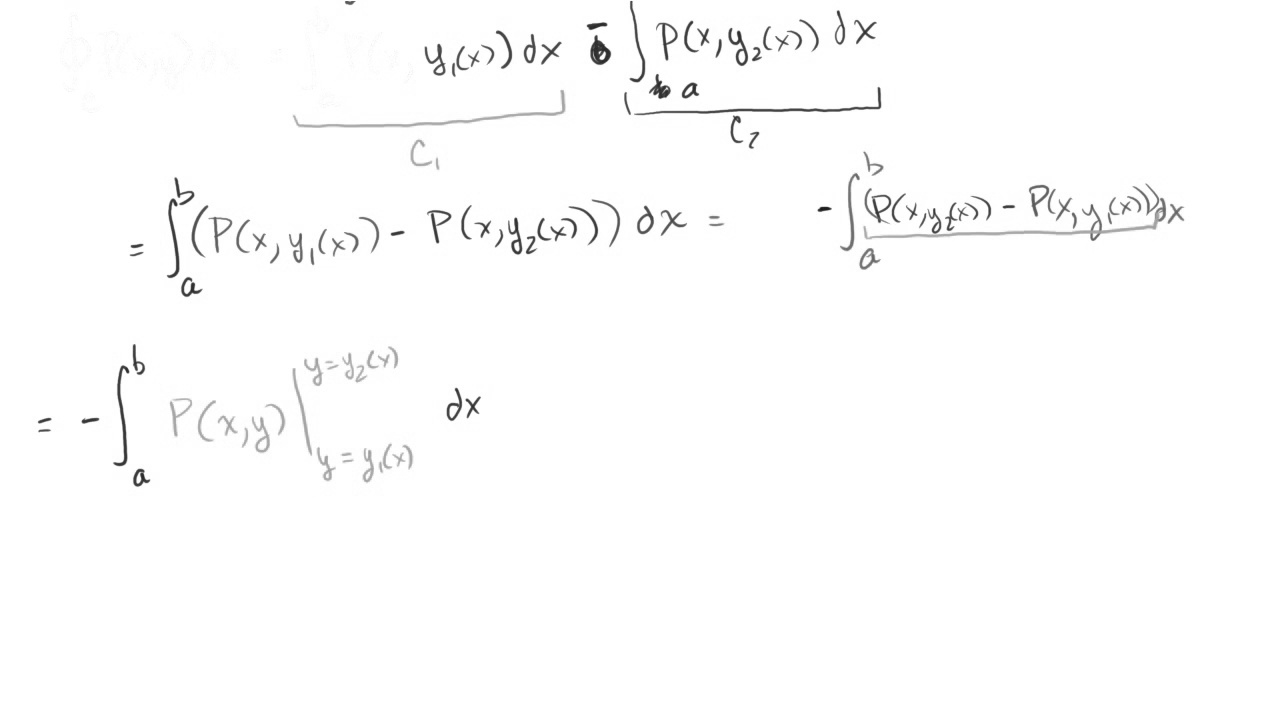 ∮ P(x,y) dx = ∫ y₁(x)) dx - ∫ₐ P(x, y₂(x)) dx
C₁ C₂
= ∫ₐᵇ (P(x, y₁(x)) - P(x, y₂(x))) dx = - ∫ₐᵇ (P(x, y₂(x)) - P(x, y₁(x))) dx
= - ∫ₐᵇ P(x,y) | y = y₂(x) y = y₁(x) dx